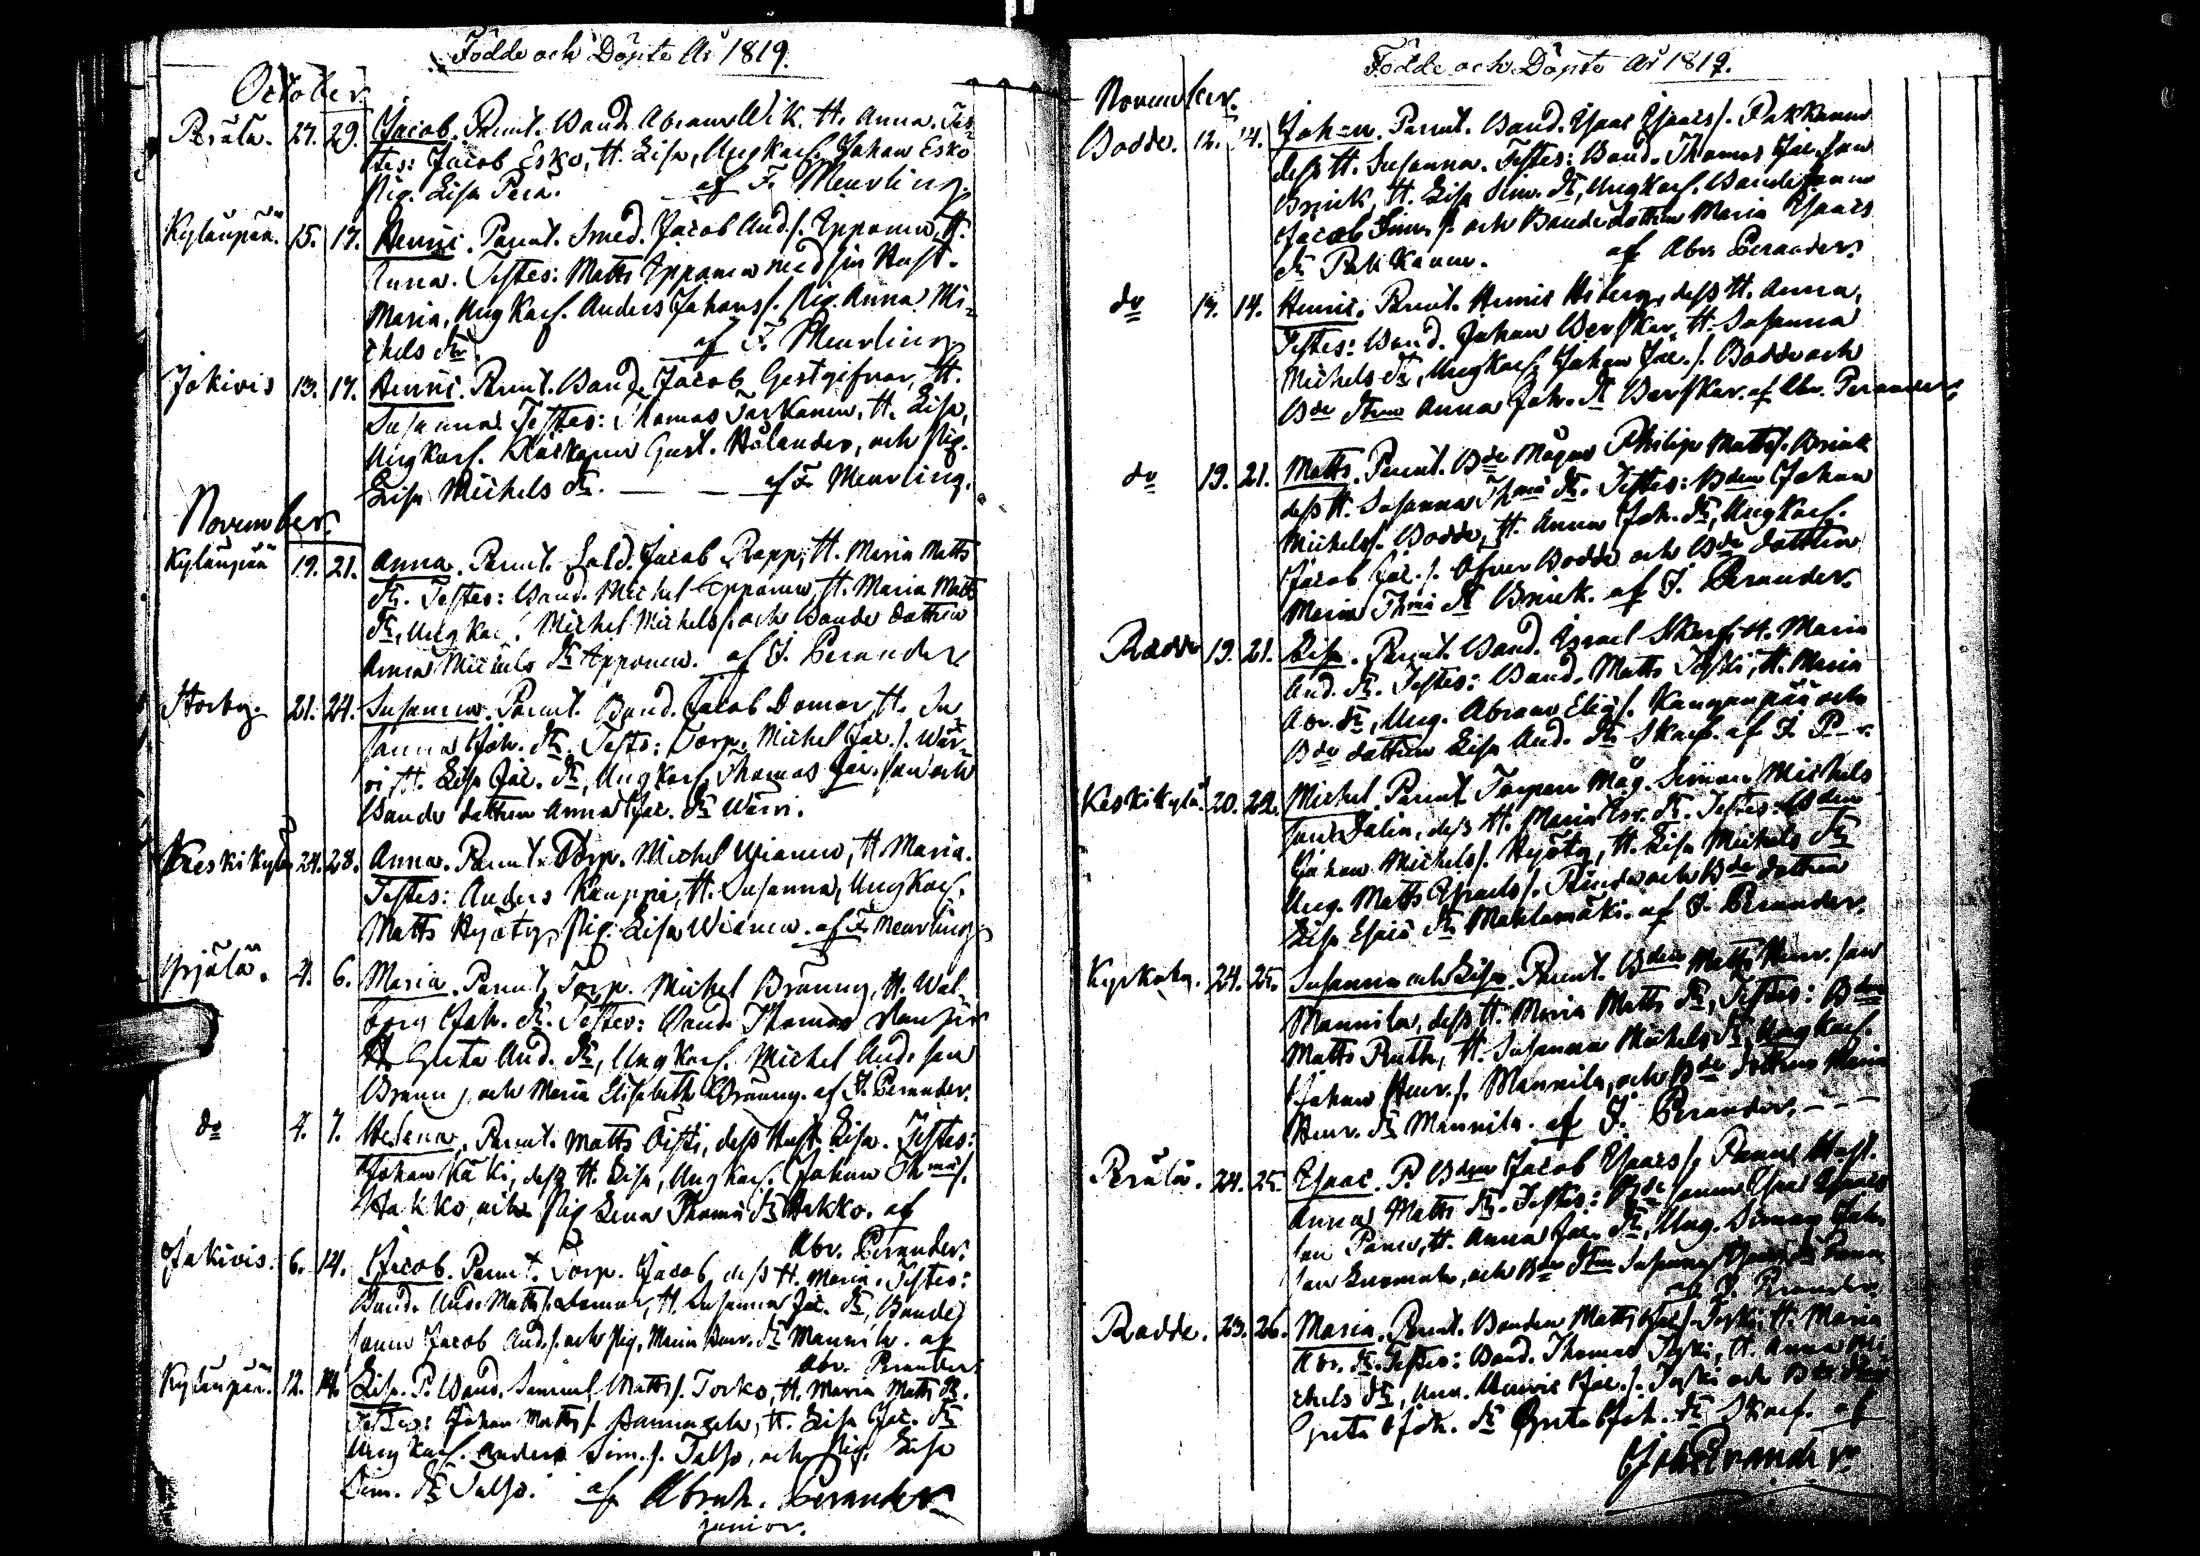 Födde och Döpte År 1819.
October.
Perälä. 27. 29. Jacob. Parent. Bond. Abram Wik. H. Anna. Tes-
tes: Jacob Esko, H. Lisa, Ung Karl. Johan Esko
Pig. Lisa Pera. af F. Meurling.
Kylänpää. 15. 17. Henric. Parent. Smed. Jacob And. s. Epponen, H.
Anna. Testes: Matts Epponen med sin Hust.
Maria, Ung Karl. Anders Johans s. Pig. Anna Mi-
chels dr. af F. Meurling
Jokivis 13. 17. Henric. Parent. Bond. Jacob Gestgifvar, H.
Susanna. Testes: Thomas Tarkanen, H. Lisa,
Ung Karl. Gust. Hölander, och Pig.
Lisa Michels dr. — — af F. Meurling.
November.
Kylänpää 19. 21. Anna. Parent. Sold. Jacob Rapp, H. Maria Matts
dr. Testes: Bond. Michel Epponen, H. Maria Matts
dr, Ung Kar. Michel Michels s. och Bonde dottren
Anna Michels dr Epponen. af J. Perander
Storby. 21. 24. Susanna. Parent. Bond. Jacob Domar, H. Su
sanna Joh. dr. Tests: Torp. Michel Jac. s. Wär-
ri, H. Lisa Jac. dr, Ung Karl. Thomas Jac. son och
Bonde dottren Anna Jac. dr Wärri.
Keskikylä 24. 28. Anna. Parent. Torp. Michel Wianen, H. Maria.
Testes: Anders Kauppi, H. Susanna, Ung Karl.
Matts Hyöty, Pig. Lisa Wianen. af F. Meurling
Yrjälä. 4. 6. Maria. Parent. Torp. Michel Brunng, H. Wal
borg Joh. dr. Testes: Bond. Thomas
H. Greta And. dr, Ung Karl. Michel And. son
Brunng, och Maria Elisabeth Brunng. af J. Perander.
do 4. 7. Helena. Parent. Matts Oisti, dess Hust. Lisa. Testes:
Johan Käki, dess H. Lisa, Ung Karl. Johan Thomæ s.
Hakko, och Pig Lena Thomæ dr Hakko. af
Abr. Perander.
Jokivis. 6. 14. Jacob. Parent. Torp. Jacob, dess H. Maria. Testes:
Bond. And. Matts s. Domar, H. Susanna Jac. dr, Bonde
sonen Jacob And. s. och Pig. Maria Henr. dr Mannila. af
Abr. Perander
Kylänpää. 12. 14. Lisa. P. Bond. Samuel Matts s. Torko, H. Maria Matts dr.
Testes: Johan Matts s. H. Lisa Jac. dr
Ung Karl. Anders Sim. s. Talso, och Pig. Lisa
Sim. dr Talso. af Abrah. Perander
junior.
Födde och Döpte År 1819.
November.
Bodde. 12. 14. Johan. Parent. Bond. Isaac Isaacs s. Pakkanen
dess H. Susanna. Testes: Bond. Thomas Jac. son
Brink, H. Lisa Sim. dr, Ung Karl. Bondesonen
Jacob Sim. s. och Bondedottren Maria Isaacs
dr Pakkanen. af Abr. Perander.
do 13. 14. Henric. Parent. Henric Hiberg, dess H. Anna,
Testes: Bond. Johan Berskar, H. Susanna
Michels dr, Ung Karl. Johan Jac. s. Bodde och
Bde dtren Anna Joh. dr Berskar. af Abr. Perander,
do 19. 21. Matts. Parent. Bde Mågen Philip Matts s. Brink
dess H. Susanna Thomæ dr. Testes: Bden Johan
Michels s. Bodde, H. Anna Joh. dr, Ung Karl.
Jacob Jac. s. Öfver Bodde och Bde dottren
Maria Thomæ dr Brink. af J. Perander.
Radde 19. 21. Lisa. Parent. Bond. Israel Skarp, H. Maria
And. dr. Testes: Bond. Matts Teski, H. Maria
Abr. dr, Ung. Abram Elias s. Kangenpää och
Bde dottren Lisa And. dr Skarp. af J. P—r.
Keskikylä. 20. 22. Michel. Parent. Torpare Måg. Simon Michels
son Salin, dess H. Maria Esr. dr. Testes: Bden
Johan Michels s. Hyöty, H. Lisa Michels dr
Ung. Matts Israels s. och Bde dottren
Lisa Esaiæ dr Mahlamäki. af J. Perander.
Kyrkoby. 24. 25. Susanna och Lisa. Parent. Bden Matts Henr. son
Mannila, dess H. Maria Matts dr, Testes: Bden
Matts Ruth, H. Susanna Michels dr, Ung Karl.
Johan Henr. s. Mannila, och Bde dottren Maria
Henr. dr Mannila. af J. Perander. – – –
Perälä. 24. 25. Isaac. P. Bden Jacob Isaacs s. Panne, Hust.
Anna Matts dr. Testes: Bde sonen Isaac Isaacs
son Panne, H. Anna Jac. dr, Ung. Simon Joh.
son och Bde dtren Susanna Isaacs dr Panne
af J. Perander.
Radde. 23. 26. Maria. Parent. Bonden Matts Jac. s. Teski, H. Maria
Abr. dr. Testes: Bond. Thomas Teski, H. Anna Mi
chels dr, Ung. Henric Jac. s. Teski och Bde dtren
Greta Joh. dr Greta Joh. dr Skarp. af
Joh Perander